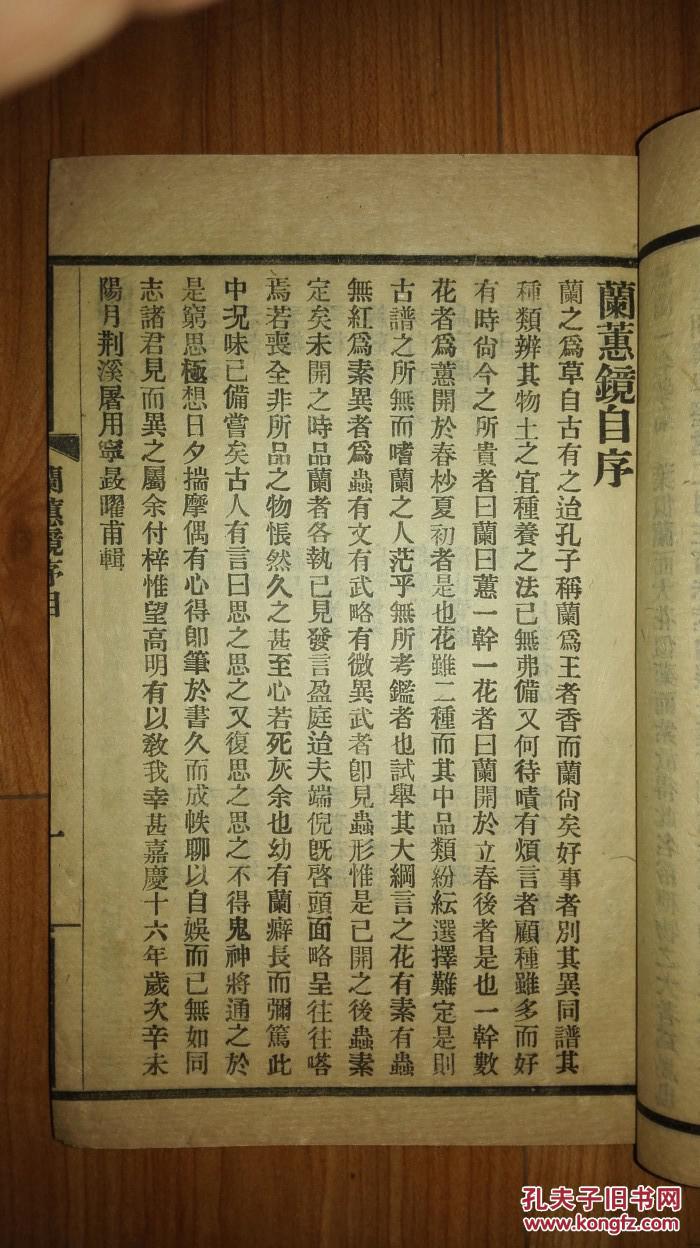 蘭蕙鏡自序
蘭之爲草自古有之迨孔子稱蘭爲王者香而蘭尙矣好事者別其異同譜其
種類辨其物土之宜種養之法已無弗備又何待嘖有煩言者顧種雖多而好
有時尙今之所貴者曰蘭曰蕙一幹一花者曰蘭開於立春後者是也一幹數
花者爲蕙開於春杪夏初者是也花雖二種而其中品類紛紜選擇難定是則
古譜之所無而嗜蘭之人茫乎無所考鑑者也試舉其大綱言之花有素有蟲
無紅爲素異者爲蟲有文有武略有微異武者卽見蟲形惟是已開之後蟲素
定矣未開之時品蘭者各執已見發言盈庭迨夫端倪旣啓頭面略呈往往嗒
焉若喪全非所品之物悵然久之甚至心若死灰余也幼有蘭癖長而彌篤此
中況味已備嘗矣古人有言曰思之思之又復思之思之不得鬼神將通之於
是窮思極想日夕揣摩偶有心得卽筆於書久而成帙聊以自娛而已無如同
志諸君見而異之屬余付梓惟望高明有以敎我幸甚嘉慶十六年歲次辛未
陽月荆溪屠用寧㝡曜甫輯
蘭蕙鏡序目
一
孔夫子旧书网
www.kongfz.com